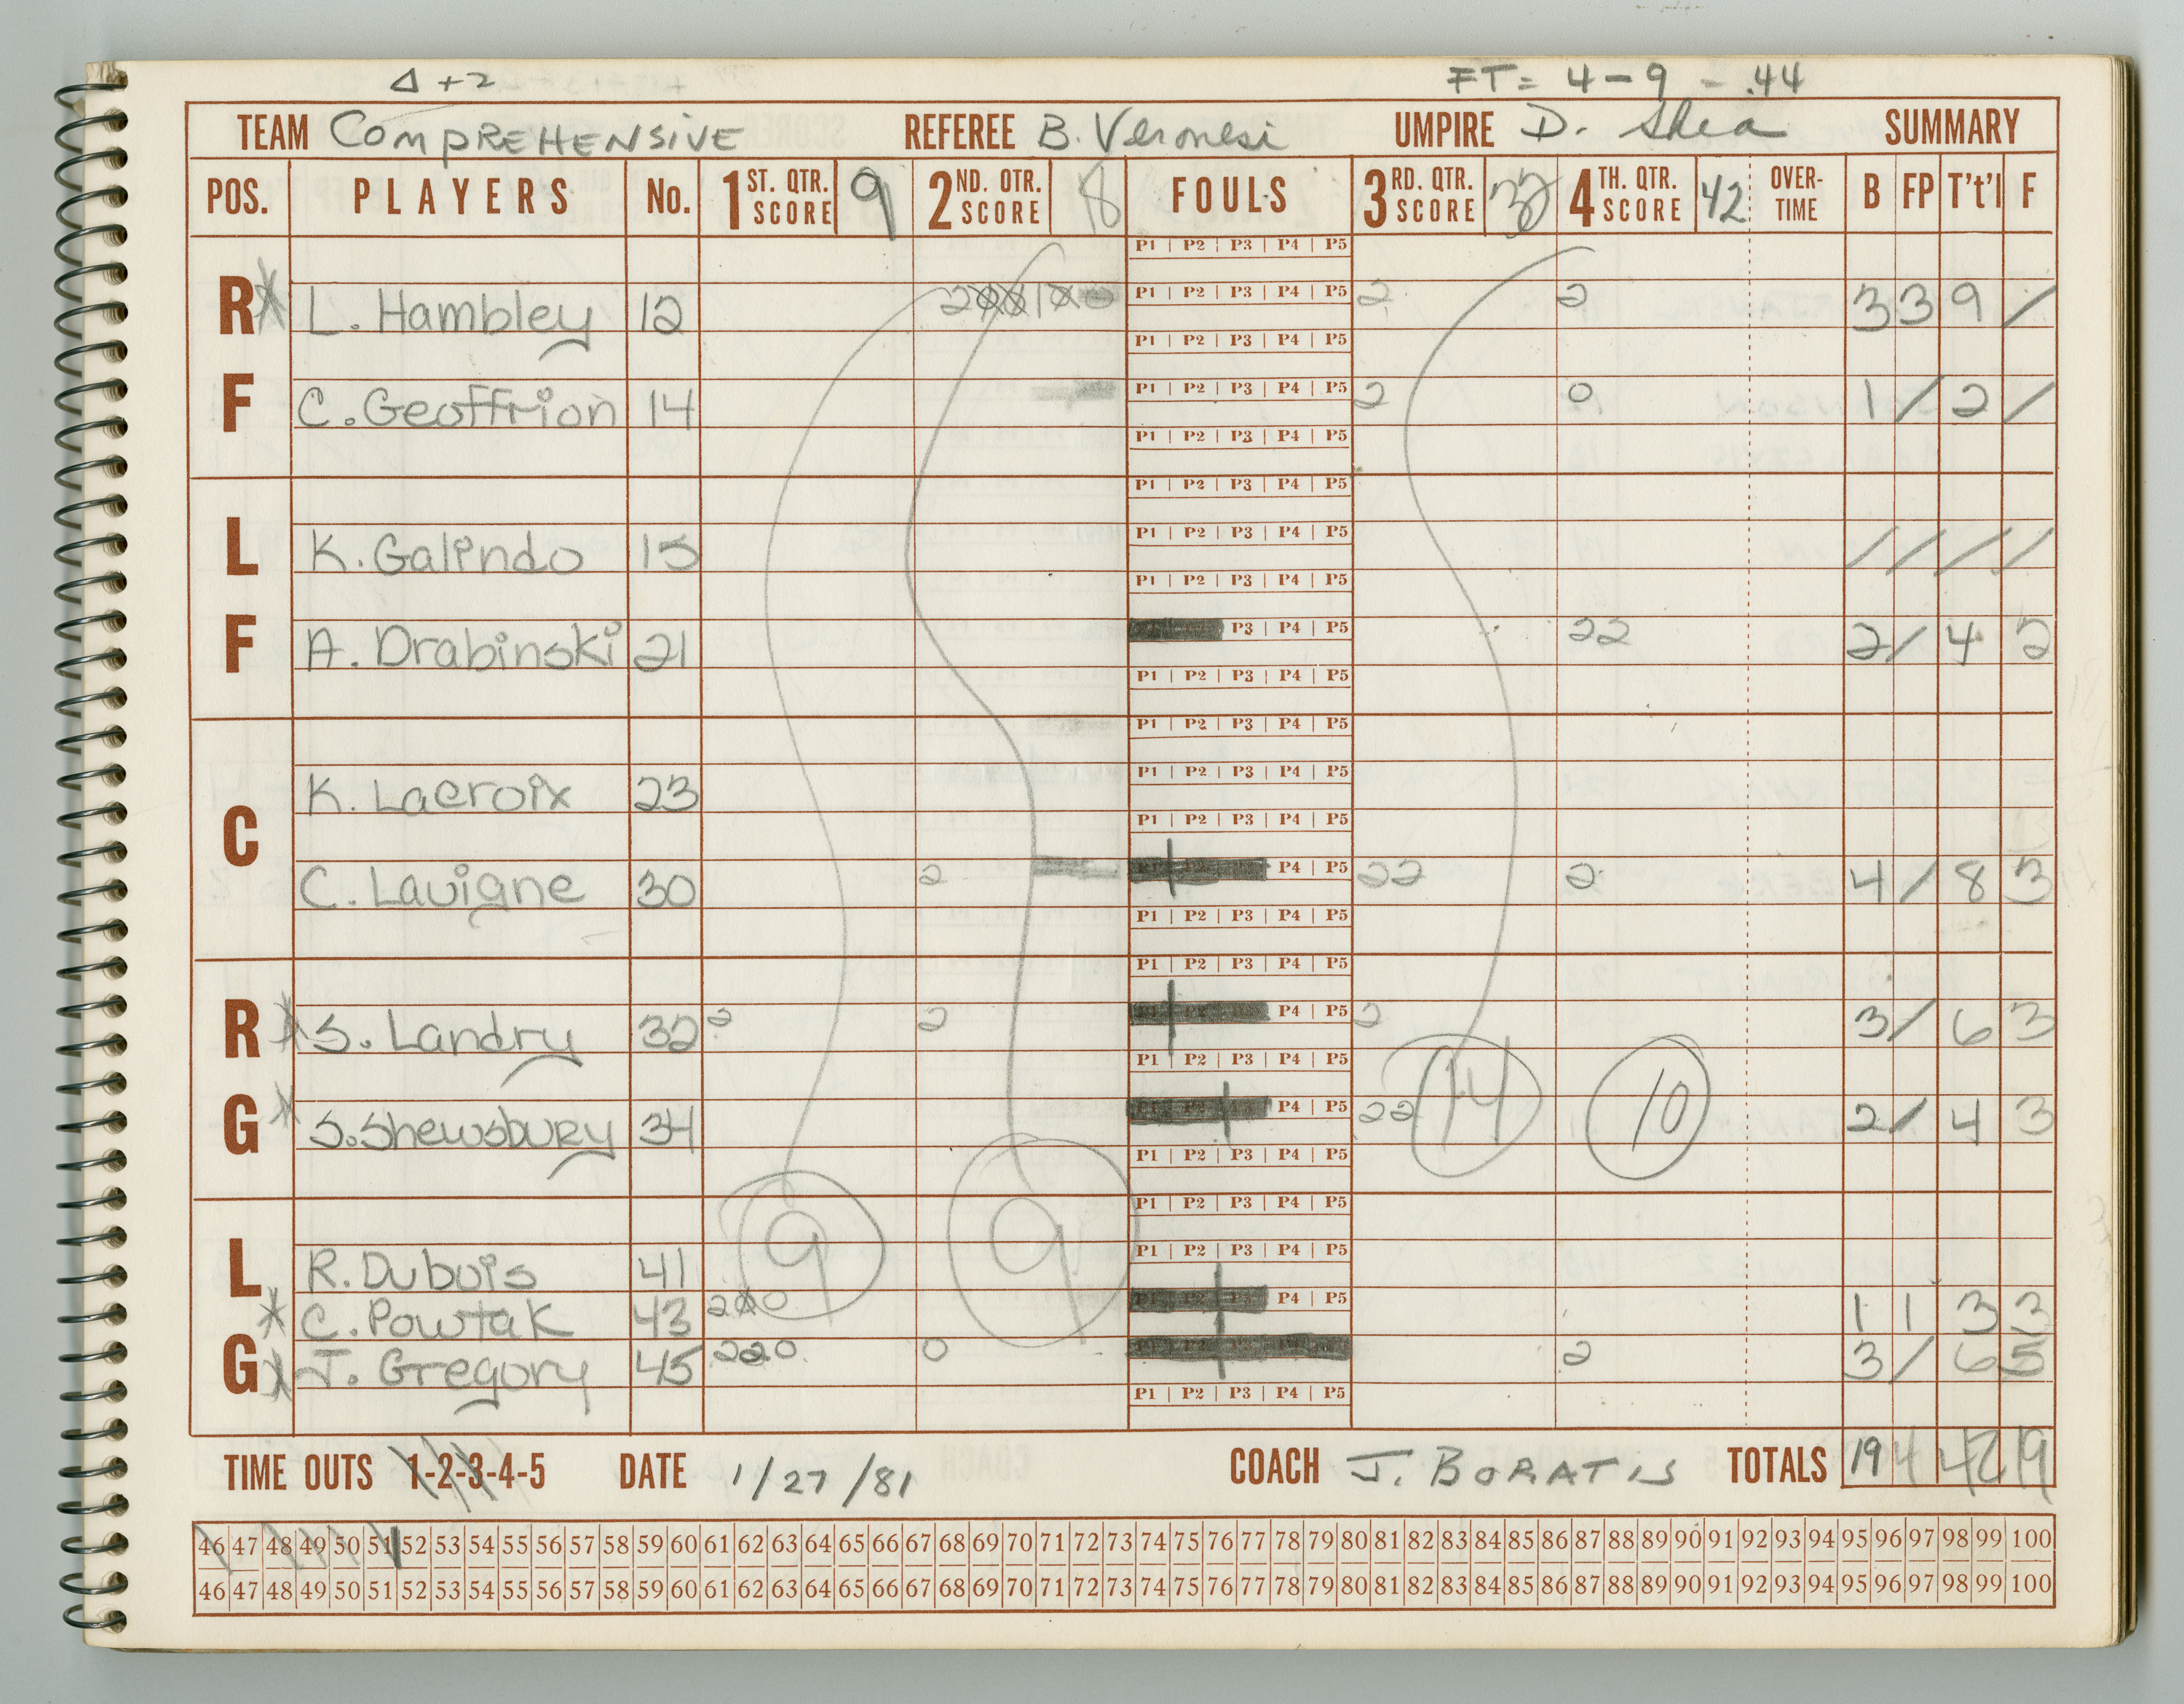 Δ +2 FT = 4 - 9 - .44
TEAM COMPREHENSIVE REFEREE B. Veronesi UMPIRE D. Shea SUMMARY
POS. PLAYERS No. 1ST. QTR. SCORE 9 2ND. QTR. SCORE 18 FOULS 3RD. QTR. SCORE 32 4TH. QTR. SCORE 42 OVER-TIME B FP T't'l F
P1 | P2 | P3 | P4 | P5
R L. Hambley 12 2 1 P1 | P2 | P3 | P4 | P5 2 2 3 3 9 /
P1 | P2 | P3 | P4 | P5
F C. Geoffrion 14 P1 | P2 | P3 | P4 | P5 2 0 1 / 2 /
P1 | P2 | P3 | P4 | P5
P1 | P2 | P3 | P4 | P5
L K. Galindo 15 P1 | P2 | P3 | P4 | P5 / / / /
P1 | P2 | P3 | P4 | P5
F A. Drabinski 21 P3 | P4 | P5 22 2 / 4 2
P1 | P2 | P3 | P4 | P5
P1 | P2 | P3 | P4 | P5
K. Lacroix 23 P1 | P2 | P3 | P4 | P5
C P1 | P2 | P3 | P4 | P5
C. Lavigne 30 2 P4 | P5 22 2 4 / 8 3
P1 | P2 | P3 | P4 | P5
P1 | P2 | P3 | P4 | P5
R S. Landry 32 2 2 P4 | P5 2 3 / 6 3
P1 | P2 | P3 | P4 | P5
G S. Shewsbury 34 P4 | P5 22 14 10 2 / 4 3
P1 | P2 | P3 | P4 | P5
P1 | P2 | P3 | P4 | P5
L R. Dubois 41 9 9 P1 | P2 | P3 | P4 | P5
C. Powtak 43 2 0 P4 | P5 1 1 3 3
G J. Gregory 45 220 0 2 3 / 6 5
P1 | P2 | P3 | P4 | P5
TIME OUTS 1-2-3-4-5 DATE 1/27/81 COACH J. BORATIS TOTALS 19 4 42 19
46 47 48 49 50 51 52 53 54 55 56 57 58 59 60 61 62 63 64 65 66 67 68 69 70 71 72 73 74 75 76 77 78 79 80 81 82 83 84 85 86 87 88 89 90 91 92 93 94 95 96 97 98 99 100
46 47 48 49 50 51 52 53 54 55 56 57 58 59 60 61 62 63 64 65 66 67 68 69 70 71 72 73 74 75 76 77 78 79 80 81 82 83 84 85 86 87 88 89 90 91 92 93 94 95 96 97 98 99 100